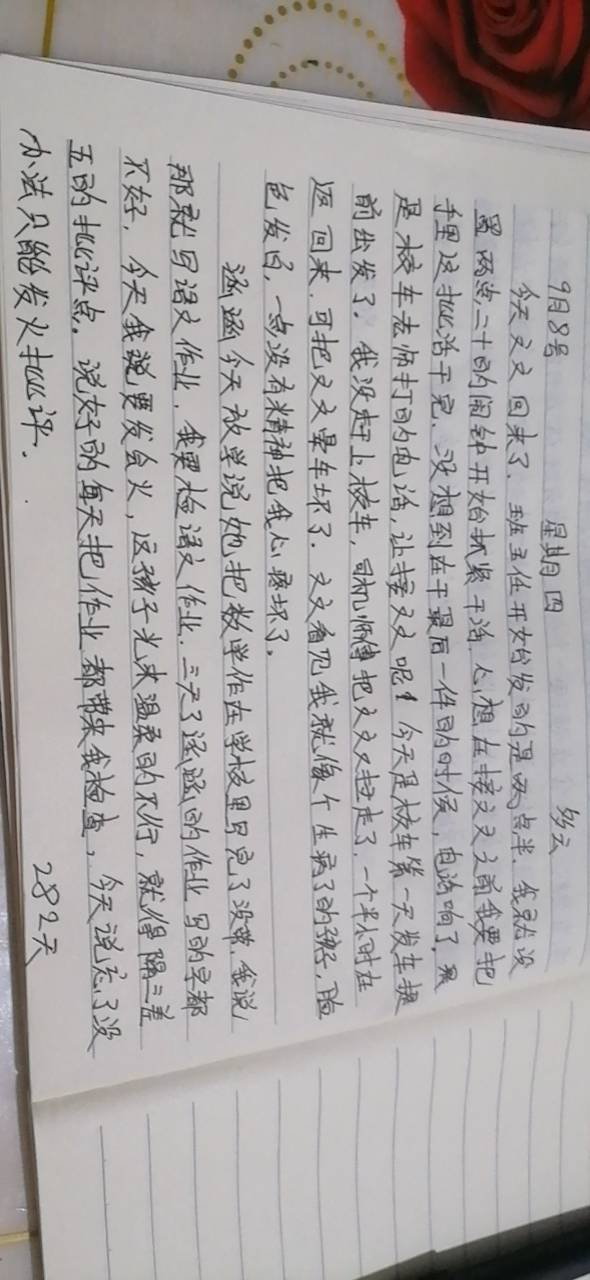 9月8号 星期四 多云
今天文文回来了．班主任开始发的是两点半．我就设
置两点二十的闹钟开始抓紧干活．心想在接文文之前我要把
手里这批活干完．没想到在干最后一件的时候，电话响了，
是校车老师打的电话，让接文文呢！今天是校车第一天发车提
前出发了．我没赶上校车，司机师傅把文文又拉走了．一个半小时在
返回来．可把文文晕车坏了．文文看见我就像个生病了的孩子，脸
色发白，一点没有精神把我心疼坏了．
涵涵今天放学说她把数学作在学校里写完了没带．我说
那就写语文作业．我要检语文作业．三天了涵涵的作业写的字都
不好．今天我说要发会火，这孩子光来温柔的不行，就得隔三差
五的批评点．说好的每天把作业都带来我检查，今天说忘了没
办法只能发火批评．
282天